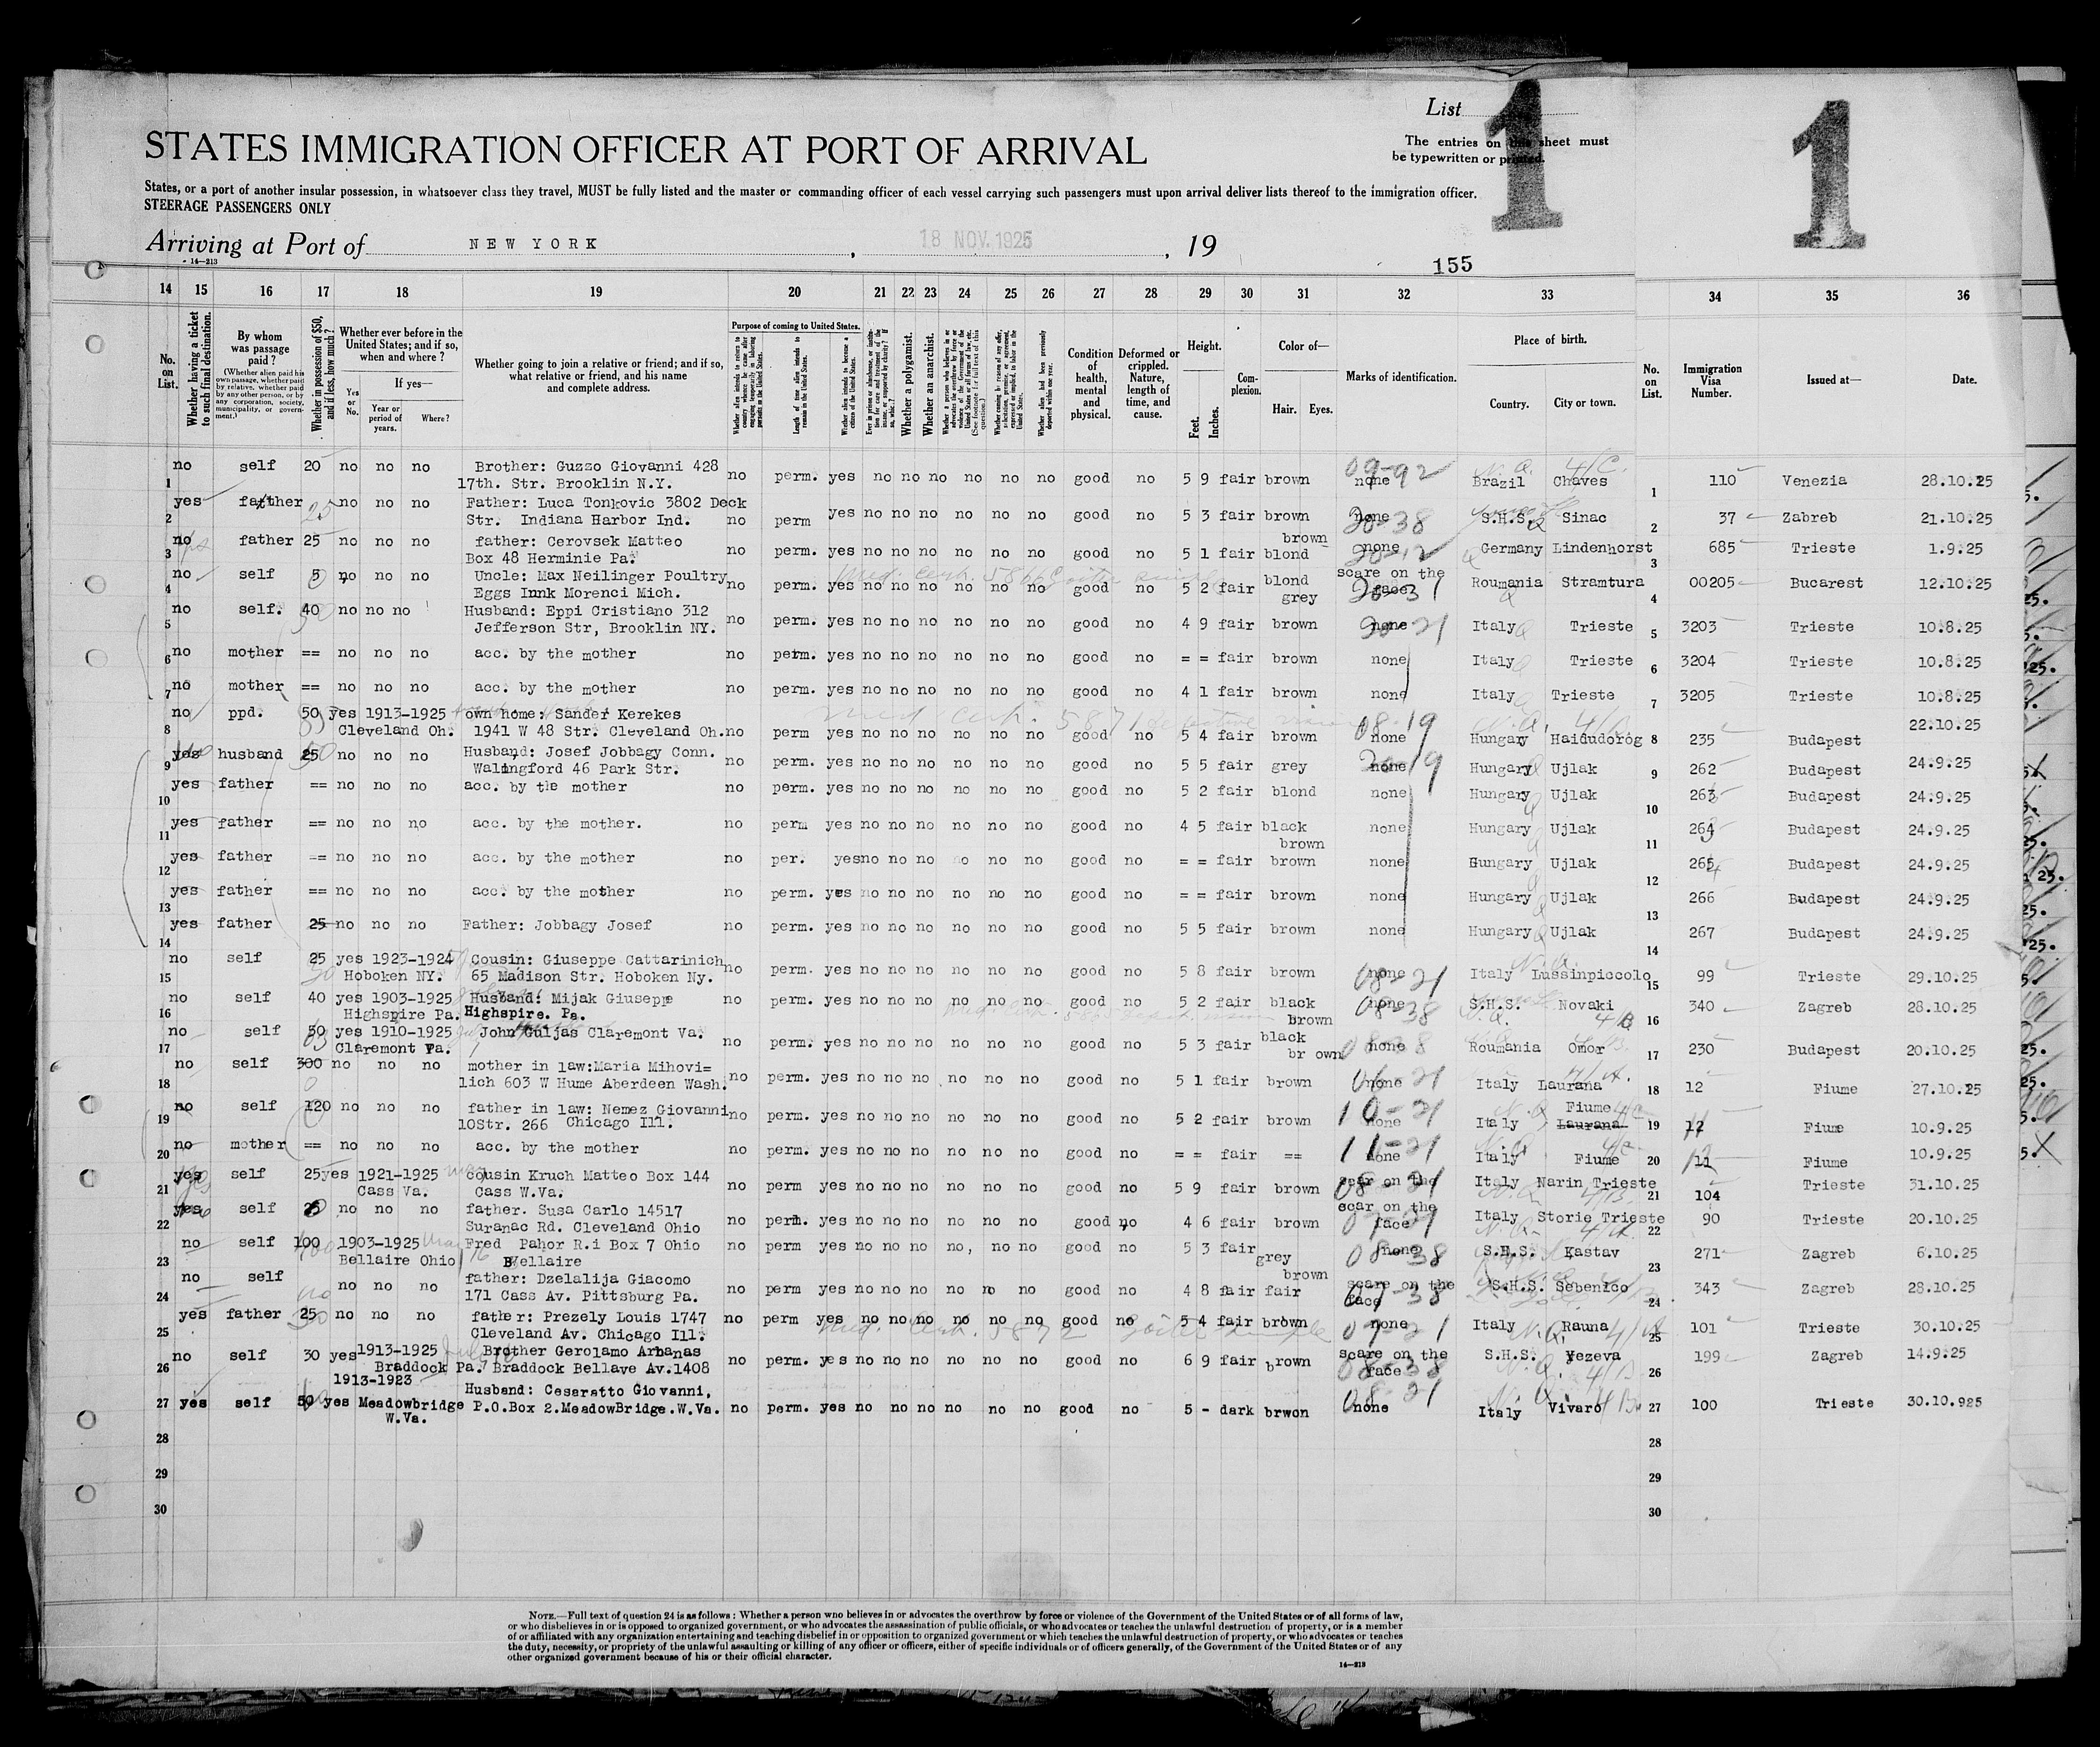 List 1
1
STATES IMMIGRATION OFFICER AT PORT OF ARRIVAL
The entries on this sheet must
be typewritten or printed.
States, or a port of another insular possession, in whatsoever class they travel, MUST be fully listed and the master or commanding officer of each vessel carrying such passengers must upon arrival deliver lists thereof to the immigration officer.
STEERAGE PASSENGERS ONLY
Arriving at Port of NEW YORK , 18 NOV. 1925 , 19
14—213
155
14 15 16 17 18 19 20 21 22 23 24 25 26 27 28 29 30 31 32 33 34 35 36
No. on List.
Whether having a ticket to such final destination.
By whom was passage paid?
(Whether alien paid his own passage, whether paid by relative, whether paid by any other person, or by any corporation, society, municipality, or government.)
Whether in possession of $50, and if less, how much?
Whether ever before in the United States; and if so, when and where?
Yes or No.
If yes—
Year or period of years.
Where?
Whether going to join a relative or friend; and if so, what relative or friend, and his name and complete address.
Purpose of coming to United States.
Length of time alien intends to remain in the United States.
Whether alien intends to become a citizen of the United States.
Whether a polygamist.
Whether an anarchist.
Condition of health, mental and physical.
Deformed or crippled. Nature, length of time, and cause.
Height.
Feet. Inches.
Complexion.
Color of—
Hair. Eyes.
Marks of identification.
Place of birth.
Country. City or town.
No. on List.
Immigration Visa Number.
Issued at—
Date.
1 no self 20 no no no Brother: Guzzo Giovanni 428 17th. Str. Brooklin N.Y. no perm. yes no no no no no no good no 5 9 fair brown none 09-92 Brazil Chaves 1 110 Venezia 28.10.25
2 yes father no no no Father: Luca Tonkovic 3802 Deck Str. Indiana Harbor Ind. no perm yes no no no no no no good no 5 3 fair brown none 20-38 S.H.S. Sinac 2 37 Zabreb 21.10.25
3 no father 25 no no no father: Cerovsek Matteo Box 48 Herminie Pa. no perm. yes no no no no no no good no 5 1 fair blond brown none 20-12 Germany Lindenhorst 3 685 Trieste 1.9.25
4 no self 5 no no no Uncle: Max Neilinger Poultry Eggs Innk Morenci Mich. no perm. yes no no no no no no good no 5 2 fair blond grey scare on the face 20-31 Roumania Stramtura 4 00205 Bucarest 12.10.25
5 no self. 40 no no no Husband: Eppi Cristiano 312 Jefferson Str, Brooklin NY. no perm. yes no no no no no no good no 4 9 fair brown none 20-21 Italy Trieste 5 3203 Trieste 10.8.25
6 no mother == no no no acc. by the mother no perm. yes no no no no no no good no = = fair brown none Italy Trieste 6 3204 Trieste 10.8.25
7 no mother == no no no acc. by the mother no perm. yes no no no no no no good no 4 1 fair brown none Italy Trieste 7 3205 Trieste 10.8.25
8 no ppd. 50 yes 1913-1925 Cleveland Oh. own home: Sander Kerekes 1941 W 48 Str. Cleveland Oh. no perm yes no no no no no no good no 5 4 fair brown none 08-19 Hungary Haidudorog 8 235 Budapest 22.10.25
med cert. 5871 defective vision
9 yes husband 25 no no no Husband: Josef Jobbagy Conn. Walingford 46 Park Str. no perm. yes no no no no no no good no 5 5 fair grey none 20-19 Hungary Ujlak 9 262 Budapest 24.9.25
10 yes father == no no no acc. by the mother no perm. yes no no no no no no good no 5 2 fair blond none Hungary Ujlak 10 263 Budapest 24.9.25
11 yes father == no no no acc. by the mother. no perm yes no no no no no no good no 4 5 fair black brown none Hungary Ujlak 11 264 Budapest 24.9.25
12 yes father == no no no acc. by the mother no per. yes no no no no no no good no = = fair brown none Hungary Ujlak 12 265 Budapest 24.9.25
13 yes father == no no no acc. by the mother no perm. yes no no no no no no good no = = fair brown none Hungary Ujlak 13 266 Budapest 24.9.25
14 yes father 25 no no no Father: Jobbagy Josef no perm. yes no no no no no no good no 5 5 fair brown none Hungary Ujlak 14 267 Budapest 24.9.25
15 no self 25 yes 1923-1924 Hoboken NY. Cousin: Giuseppe Cattarinich 65 Madison Str. Hoboken Ny. no perm. yes no no no no no no good no 5 8 fair brown none 08-21 Italy Lussinpiccolo 15 99 Trieste 29.10.25
16 no self 40 yes 1903-1925 Highspire Pa. Husband: Mijak Giuseppe Highspire. Pa. no perm. yes no no no no no no good no 5 2 fair black Brown none 08-38 S.H.S. Novaki 16 340 Zagreb 28.10.25
17 no self 50 yes 1910-1925 Claremont Va. John Guljas Claremont Va. no perm. yes no no no no no no good no 5 3 fair black brown none Roumania Omor 17 230 Budapest 20.10.25
18 no self 300 no no no mother in law:Maria Mihovi= lich 603 W Hume Aberdeen Wash. no perm. yes no no no no no no good no 5 1 fair brown none 06-21 Italy Laurana 18 12 Fiume 27.10.25
19 no self 120 no no no father in law: Nemez Giovanni 10Str. 266 Chicago Ill. no perm. yes no no no no no no good no 5 2 fair brown none 10-21 Italy Fiume Laurana 19 12 11 Fiume 10.9.25
20 no mother == no no no acc. by the mother no perm. yes no no no no no no good no = = fair == none 11-21 Italy Fiume 20 11 12 Fiume 10.9.25
21 yes self 25 yes 1921-1925 Cass Va. cousin Kruch Matteo Box 144 Cass W.Va. no perm yes no no no no no no good no 5 9 fair brown scar on the 08-21 Italy Narin Trieste 21 104 Trieste 31.10.25
22 yes self no no no father. Susa Carlo 14517 Suranac Rd. Cleveland Ohio no perm. yes no no no no no no good no 4 6 fair brown scar on the face 07-21 Italy Storie Trieste 22 90 Trieste 20.10.25
23 no self 100 1903-1925 Bellaire Ohio Fred Pahor R.i Box 7 Ohio Bellaire no perm yes no no no no, no no good no 5 3 fair grey none 08-38 S.H.S. Kastav 23 271 Zagreb 6.10.25
24 no self no no no father: Dzelalija Giacomo 171 Cass Av. Pittsburg Pa. no perm yes no no no no no no good no 4 8 fair fair brown scare on the face 07-38 S.H.S. Sebenico 24 343 Zagreb 28.10.25
25 yes father 25 no no no father: Prezely Louis 1747 Cleveland Av. Chicago Ill. no perm yes no no no no no no good no 5 4 fair brown none 07-21 Italy Rauna 25 101 Trieste 30.10.25
Med. Cert. 5872 Goiter simple
26 no self 30 yes 1913-1925 Braddock Pa. Brother Gerolamo Arbanas Braddock Bellave Av.1408 no perm. yes no no no no no no good no 6 9 fair brown scare on the face 08-38 S.H.S. Yezeva 26 199 Zagreb 14.9.25
27 yes self 50 yes 1913-1923 Meadowbridge W.Va. Husband: Cesaratto Giovanni, P.O.Box 2.MeadowBridge.W.Va. no perm. yes no no no no no no good no 5 - dark brwon none 08-21 Italy Vivaro 27 100 Trieste 30.10.925
28 28
29 29
30 30
NOTE.—Full text of question 24 is as follows: Whether a person who believes in or advocates the overthrow by force or violence of the Government of the United States or of all forms of law,
or who disbelieves in or is opposed to organized government, or who advocates the assassination of public officials, or who advocates or teaches the unlawful destruction of property, or is a member
of or affiliated with any organization entertaining and teaching disbelief in or opposition to organized government or which teaches the unlawful destruction of property, or who advocates or teaches
the duty, necessity, or propriety of the unlawful assaulting or killing of any officer or officers, either of specific individuals or of officers generally, of the Government of the United States or of any
other organized government because of his or their official character.
14—213